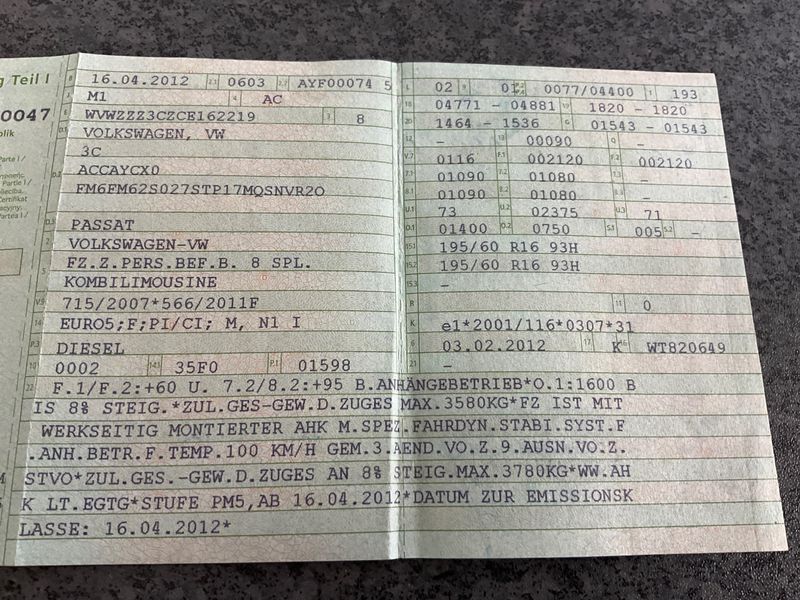 g Teil I
0047
blik
Parte I /
Parte I /
B 16.04.2012 2.1 0603 2.2 AYF00074 5
J M1 4 AC
E WVWZZZ3CZCE162219 3 8
VOLKSWAGEN, VW
3C
ACCAYCX0
FM6FM62S027STP17MQSNVR2O
D.3 PASSAT
VOLKSWAGEN-VW
FZ.Z.PERS.BEF.B. 8 SPL.
KOMBILIMOUSINE
V.9 715/2007*566/2011F
14 EURO5;F;PI/CI; M, N1 I
P.3 DIESEL
10 0002 14.1 35F0 P.1 01598
L 02 9 01 0077/04400 T 193
18 04771 - 04881 19 1820 - 1820
20 1464 - 1536 G 01543 - 01543
12 - 13 00090 Q -
V.7 0116 F.1 002120 F.2 002120
7.1 01090 7.2 01080 7.3 -
8.1 01090 8.2 01080 8.3 -
U.1 73 U.2 02375 U.3 71
O.1 01400 O.2 0750 S.1 005 S.2 -
15.1 195/60 R16 93H
15.2 195/60 R16 93H
15.3 -
R 11 0
K e1*2001/116*0307*31
6 03.02.2012 17 K 16 WT820649
21 -
22 F.1/F.2:+60 U. 7.2/8.2:+95 B.ANHÄNGEBETRIEB*O.1:1600 B
IS 8% STEIG.*ZUL.GES-GEW.D.ZUGES MAX.3580KG*FZ IST MIT
WERKSEITIG MONTIERTER AHK M.SPEZ.FAHRDYN.STABI.SYST.F
.ANH.BETR.F.TEMP.100 KM/H GEM.3.AEND.VO.Z.9.AUSN.VO.Z.
STVO*ZUL.GES.-GEW.D.ZUGES AN 8% STEIG.MAX.3780KG*WW.AH
K LT.EGTG*STUFE PM5,AB 16.04.2012*DATUM ZUR EMISSIONSK
LASSE: 16.04.2012*